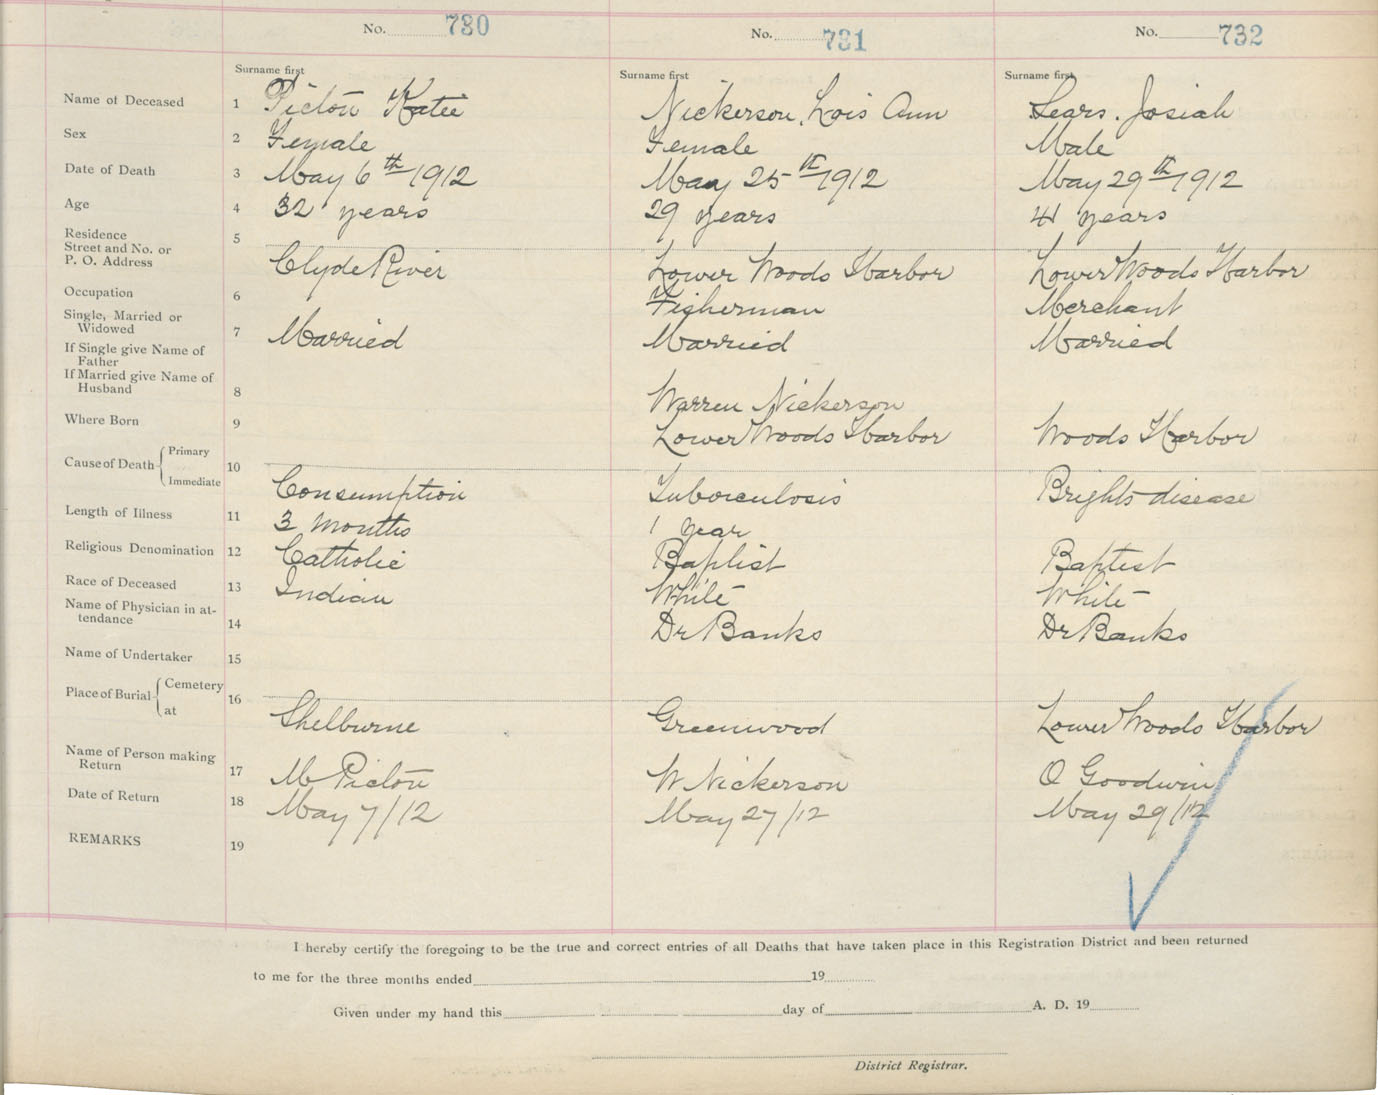 No. 730 No. 731 No. 732
Surname first Surname first Surname first
Name of Deceased 1 Picton Katie Nickerson, Lois Ann Sears, Josiah
Sex 2 Female Female Male
Date of Death 3 May 6th 1912 May 25th 1912 May 29th 1912
Age 4 32 years 29 years 41 years
Residence 5
Street and No. or
P. O. Address Clyde River Lower Woods Harbor Lower Woods Harbor
Occupation 6 Fisherman Merchant
Single, Married or
Widowed 7 Married Married Married
If Single give Name of
Father
If Married give Name of
Husband 8 Warren Nickerson
Where Born 9 Lower Woods Harbor Woods Harbor
Cause of Death Primary
10
Immediate Consumption Tuborculosis Brights disease
Length of Illness 11 3 Months 1 year
Religious Denomination 12 Catholic Baptist Baptist
Race of Deceased 13 Indian White White
Name of Physician in at-
tendance 14 Dr Banks Dr Banks
Name of Undertaker 15
Place of Burial Cemetery
16
at Shelburne Greenwood Lower Woods Harbor
Name of Person making
Return 17 M Picton W Nickerson O Goodwin
Date of Return 18 May 7/12 May 27/12 May 29/12
REMARKS 19
I hereby certify the foregoing to be the true and correct entries of all Deaths that have taken place in this Registration District and been returned
to me for the three months ended 19
Given under my hand this day of A. D. 19
District Registrar.